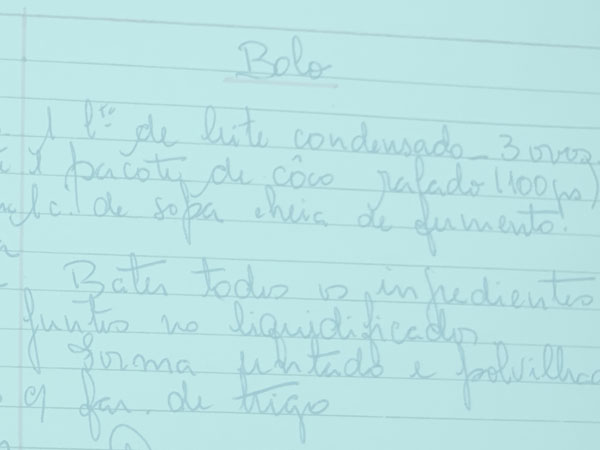 Bolo
1 lta de leite condensado - 3 ovos
1 pacote de côco ralado (100grs)
c. de sopa cheia de fermento.
Bater todos os ingredientes
juntos no liquidificador
forma untada e polvilhad
c/ far. de trigo